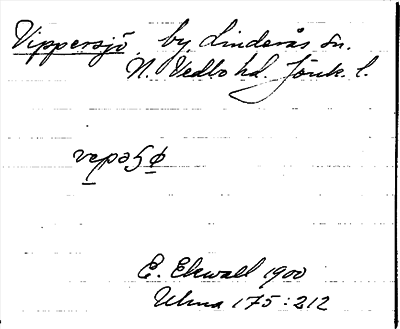 Vippersjö by Linderås sn.
N. Vedbo hd. Jönk. l.
E. Ekwall 1900
Ulma 175:212